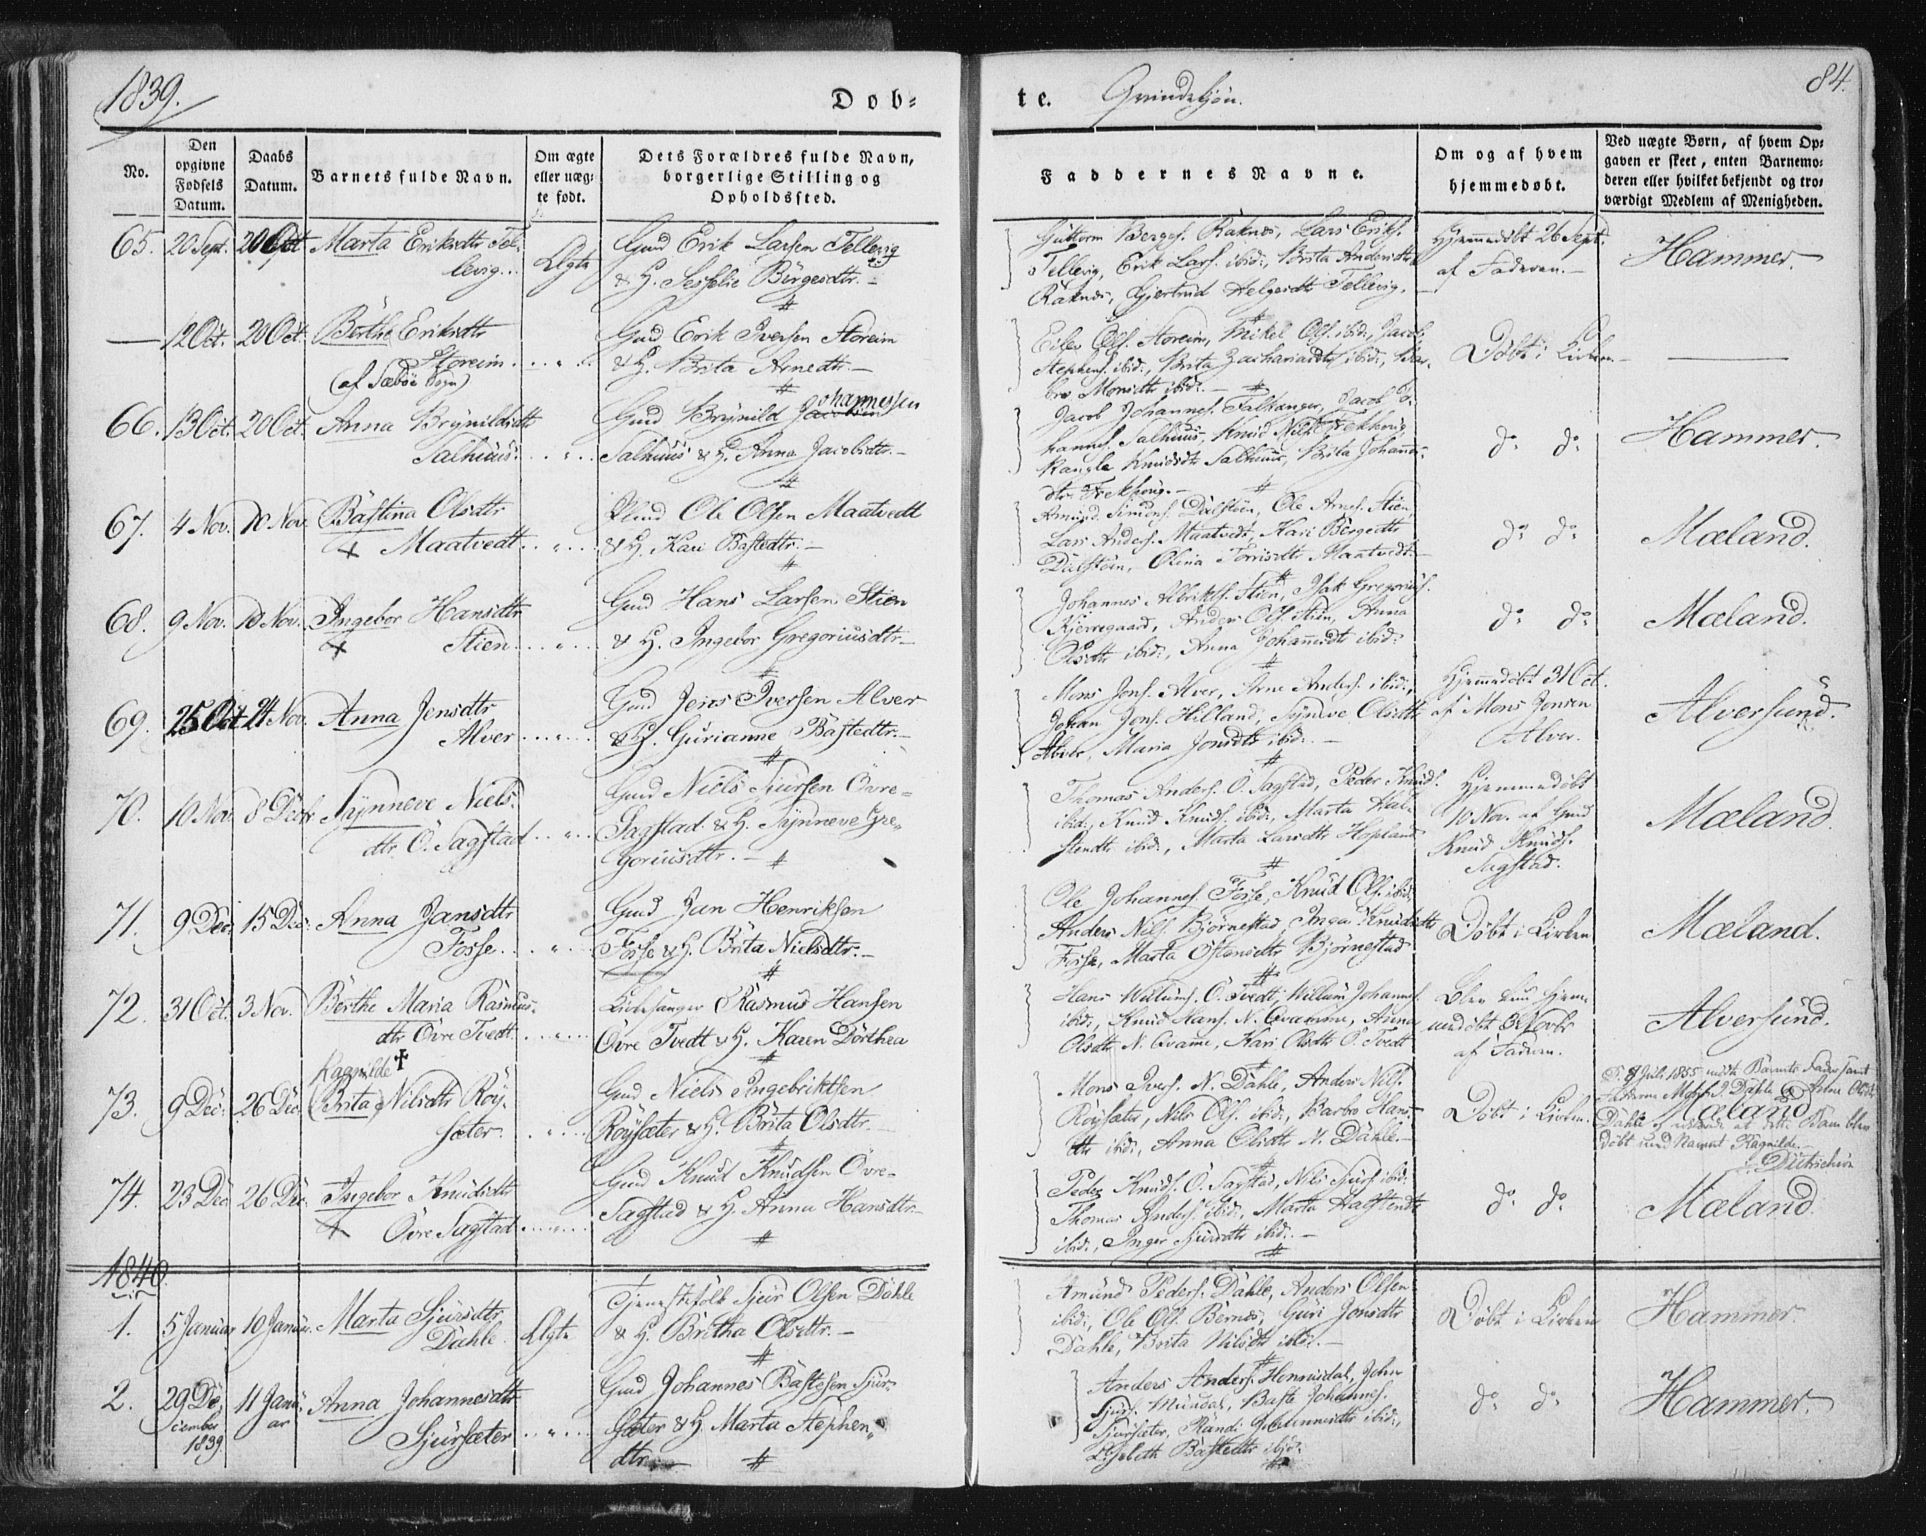 1839.
Döb-
te. Qvindekjön.
84.
No.
Den opgivne Fødsels Datum.
Daabs Datum.
Barnets fulde Navn.
Om ægte eller uægte født.
Dets Forældres fulde Navn, borgerlige Stilling og Opholdssted.
Faddernes Navne.
Om og af hvem hjemmedøbt.
Ved uægte Børn, af hvem Opgaven er skeet, enten Barnemoderen eller hvilket bekjendt og troværdigt Medlem af Menigheden.
65. 20 Sept. 20 Oct. Marta Eriksdtr Tel-
levig... Ægte
Gmd Erik Larsen Tellevig
& H. Børgesdtr. -
Guttorm Børges. Raknes, Lars Eriks.
Tellevig, Erik Lars. ibid:, Brita Andersdtr
Raknes, Gjertrud Helgesdtr Tellevig.
Hjemmedøbt 26 Sept.
af Faderen. -
Hammer.
— 12 Oct. 20 Oct. Börthe Eriksdtr
Storeim.
(af Sæbøe Sogn)
Gmd Erik Iversen Storeim
& H. Brita Arnedtr. -
Ols. Storeim, Mikel Ols. ibid:, Jacob
Stephens. ibid:, Brita Zachariasdtr ibid:, Bar-
bro Monsdtr ibid:. -
Döbt i Kirken -
66. 13 Oct. 20 Oct. Anna Brynildsdtr
Salhuus.
Gmd Brynild Johannessen
Salhuus & H. Anna Jacobsdtr. -
Jacob Johannes. Salhuus, Jacob Jo-
hannes. Salhuus, Knud Nils. Frekhoug
Knudsdtr Salhuus, Brita Johannes-
dtr Frekhoug. -
do do
Hammer.
67. 4 Nov. 10 Nov. Bastina Olsdtr
+ Maatvedt
Ole Olsen Maatvedt
& H. Kari Bastedtr. -
Amund Simons. Dalstöen, Ole Arnes. Stien,
Lars Anders. Maatvedt, Kari Börgedtr
Dalstöen, Olina Maatvedt. -
do do
Mæland.
68. 9 Nov. 10 Nov. Ingebor Hansdtr
+ Stien
Gmd Hans Larsen Stien
& H. Ingebor Gregoriusdtr. -
Johannes Albrikts. Stien, Isak Gregorius.
Kjerregaard, Anders Ols. Stien, Anna
Olsdtr ibid:, Anna Johannesdtr ibid:
do do
Mæland.
69. 25 Oct. 24 Nov. Anna Jensdtr
Alver
Gmd Jens Iversen Alver
& H. Gurianne Bastedtr. -
Mons Jons. Alver, Arne Anders. ibid:,
Johan Jons. Hilland, Synneve Olsdtr
Alver, Maria Jonsdtr ibid:. -
Hjemmedøbt 31 Oct.
af Mons Jonsen
Alver.
Alversund.
70. 10 Nov. 8 Decbr Synneve Niels-
dtr Ö. Sagstad
Gmd Niels Siursen Övre-
Sagstad & H. Synneve Gre-
goriusdtr. -
Thomas Anders. Ö. Sagstad, Peder Knuds.
ibid:, Knud Knuds. ibid:, Marta Hal-
stendtr ibid:, Marta Larsdtr Hopland
Hjemmedøbt
10 Nov. af Gmd
Knud Knuds.
Sagstad.
Mæland.
71. 9 Dec. 15 Dec: Anna Jansdtr
Fosse
Gmd Jan Henriksen
Fosse & H. Brita Nielsdtr. -
Ole Johannes. Fosse, Knud Ols. ibid:
Anders Nils. Björnestad, Inga Knudsdtr
Fosse, Marta Ostensdtr Björnestad
Döbt i Kirken
Mæland.
72. 31 Oct. 3 Nov. Börthe Maria Rasmus-
dtr Övre Tvedt
Kirkesanger Rasmus Hansen
Övre Tvedt & H. Karen Dorthea
Hans Willums. Ö. Tvedt, Willum Johannes.
ibid:, Knud Hans. N. Qvamme, Anna
Olsdtr N. Qvamme, Kari Olsdtr Ö. Tvedt
Blev hjem-
medøbt Novbr
af Faderen.
Alversund.
73. 9 Dec: 26 Dec.
Ragnilde +
(Brita) Nilsdtr Röy-
sæter.
Gmd Niels Ingebriktsen
Röysæter & H. Brita Olsdtr. -
Mons Ivers. N. Dahle, Anders Nils.
Röysæter, Nils Ols. ibid:, Barbro Hans-
dtr ibid:, Anna Olsdtr N. Dahle. -
Döbt i Kirken.
D. 8 Juli 1855 mødte Barnets Fader samt
Fadderne Mons I. Dahle & Anna Olsdtr
Mæland
Dahle og at dette Barn blev
døbt med Navnet Ragnilde. -
74. 23 Dec 26 Dec. Ingebor Knudsdtr
+ Övre Sagstad
Gmd Knud Knudsen Övre-
Sagstad & H. Anna Hansdtr. -
Peder Knuds. Ö. Sagstad, Nils Siurs. ibid:
Thomas Anders. ibid:, Marta Halstendtr
ibid:, Inger Siursdtr ibid:. -
do do
Mæland.
1840
1. 5 Januar 10 Januar Marta Sjursdtr
Dahle. Ægte
Tjenestefolk Sjur Olsen Dahle
& H. Britha Olsdtr. -
Amund Peders. Dahle, Anders Olsen
ibid:, Ole Ols. Bernes, Guri Jonsdtr
Dahle, Brita Nilsdtr ibid:. -
Döbt i Kirken
Hammer.
2. 29 De-
cember
1839.
11 Janu-
ar
Anna Johannesdtr
Sjursæter
Gmd Johannes Bastesen Sjur-
sæter & H. Marta Stephen-
dtr. -
Anders Anders. Henrisdal, John
Sjurs. Mundal, Baste Johannes.
Sjursæter, Randi ibid:,
Lisbeth Bastedtr ibid:
do do
Hammer.